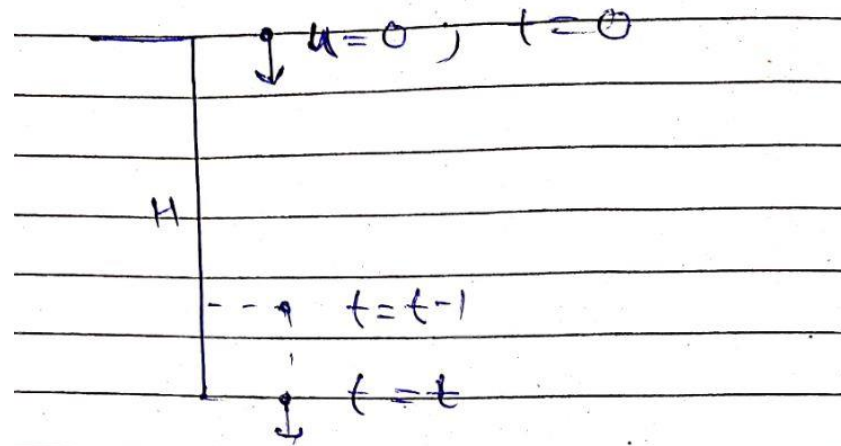 u=0 ; t=0
H
t=t-1
t=t